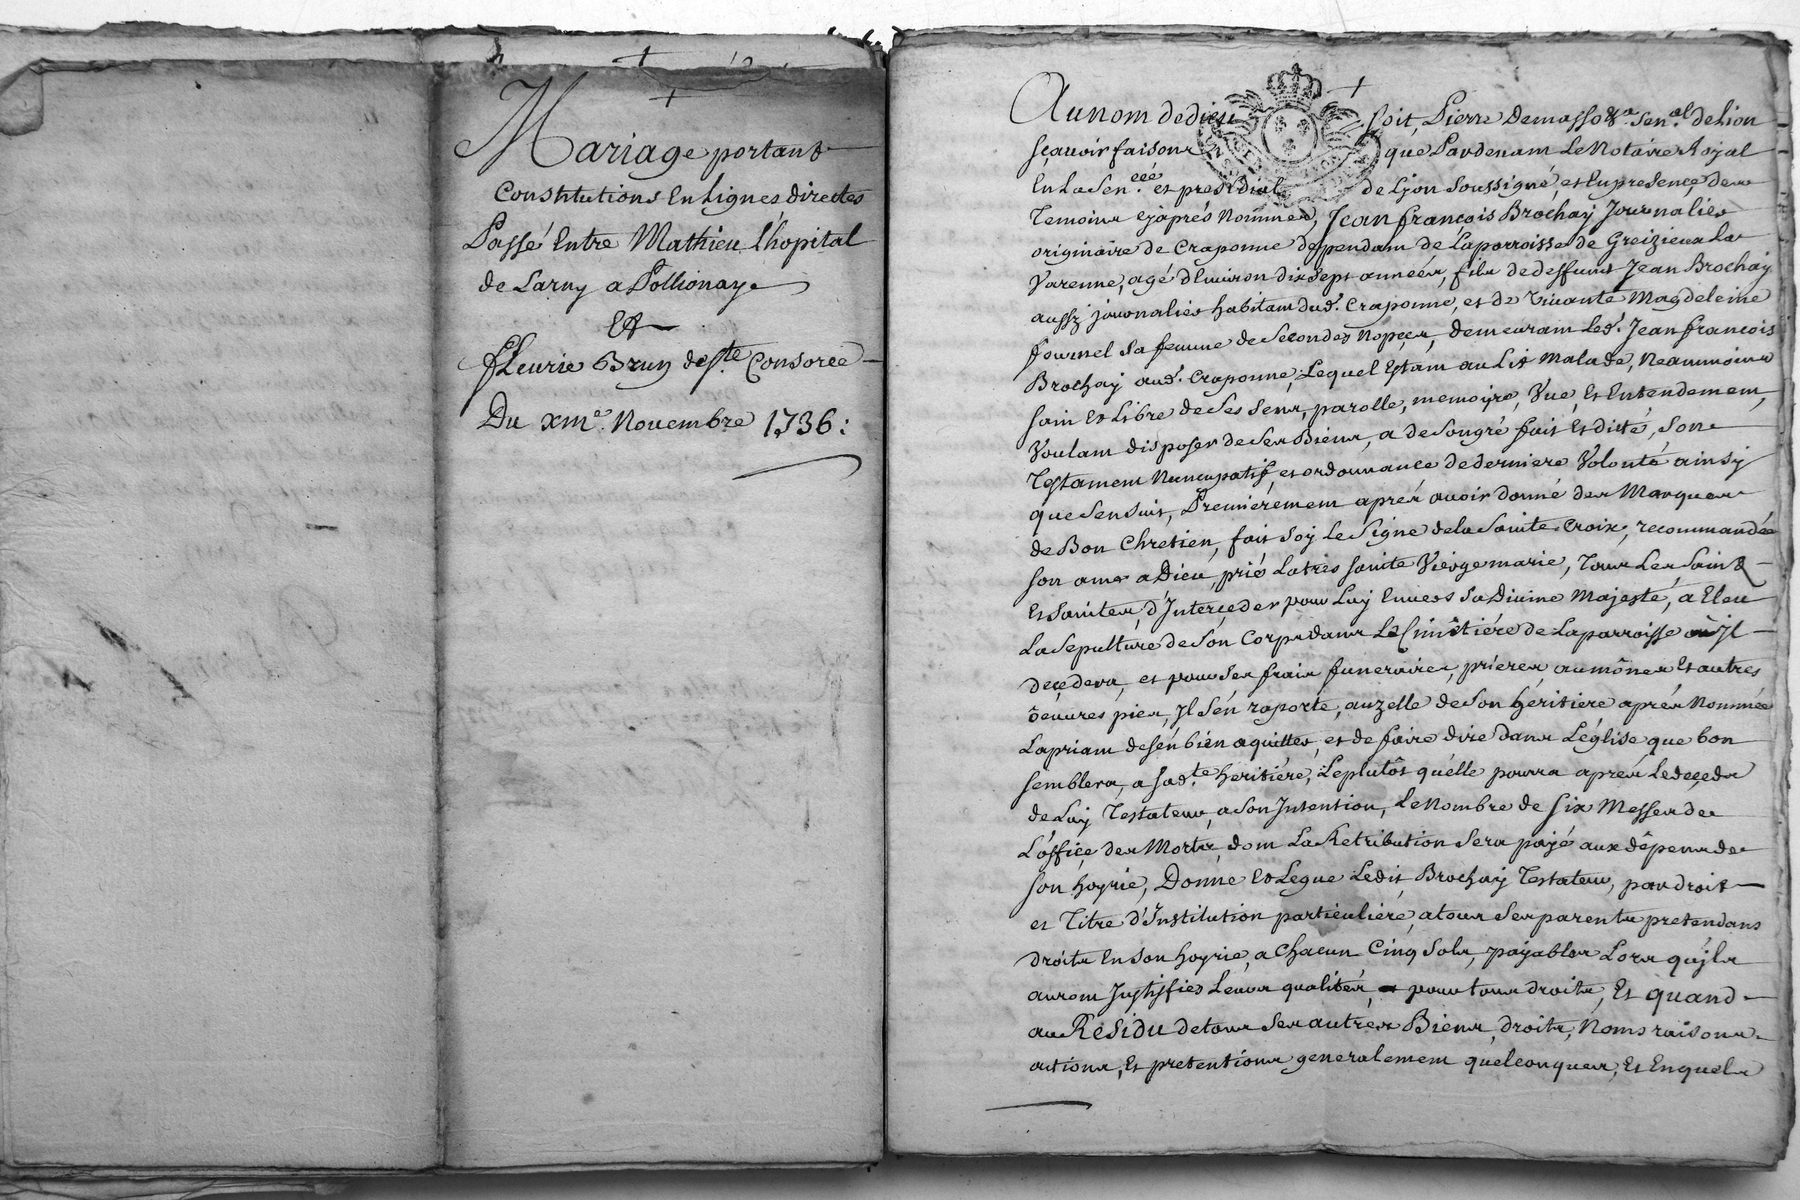 Mariage portant
Constitutions En Lignes directes
Passé Entre Mathieu L'hopital
de Larny a Pollionay
Et
fleurie Brun de s.te Consorce
Du xm.e Novembre 1736:
Au nom de dieu soit, Pierre Demasso &a. sen.al de Lion
sçavoir faisons que Pardevant Le Notaire Royal
En La Sen.ceé et presidial de Lyon soussigné, et En presence des
Temoins cy àprés Nommes, Jean françois Brochay Journalier
originaire de Craponne dependant de La parroisse de Greizieux La
Varenne, agé d'Environ dix sept années, fils de deffunt Jean Brochay
aussy journalier habitant dud. Craponne, et de vivante Magdeleine
fournel sa femme de secondes Nopces, demeurant Led. Jean françois
Brochay aud. Craponne, Lequel Estant au Lit Malade, Neanmoins
sain Et Libre de ses sens, parolle, memoire, Vüe, Et Entendement,
Voulant disposer de ses Biens, a de son gré fait Et dicté, son
Testament Nuncupatif, et ordonnance de derniere Volonté ainsy
que s'en suit, Premiérement aprés avoir donné des Marques
de Bon Chretien, fait soy Le signe de la sainte Croix, recommandée
son ame a Dieu, prié La trés sainte Vierge marie, Tous Les saints
Et saintes, d'Interçeder pour Luy Envers sa Divine Majesté, a Eleu
La sepulture de son Corps dans Le Cimêtiére de La parroisse ou Jl
deçedera, et pour ses frais funeraires, priéres, aumônes Et autres
oeuvres pies, Jl s'en raporte, auzelle de son héritiere aprés Nommée
La priant de s'en bien aquitter, et de faire dire dans L'église, que bon
semblera, a sad.te heritiére, Le plutôt qu'elle pourra aprés Le deçeds
de Luy Testateur, a son Intention, Le Nombre de six Messes de
L'offiçe des Morts, dont La Retribution sera payé aux dêpens de
son hoyrie, Donne Et Legue Ledit Brochay Testateur, par droit
et Titre d'Institution particuliére, a tous ses parents pretendans
droits En son hoyrie, a Chacun Cinq sols, payables Lors qu'jls
auront Justifies Leurs qualités, pour tous droits, Et quand
au Residu de tous ses autres Biens, droits, Noms raisons
actions, Et pretentions generalement quelconques, Et En quels